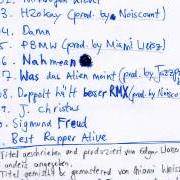 03. H2okay (prod. by Noiscout)
04. Damn
05. PBMW (prod. by Miami Weisz)
06. Nahmean
07. Was das Alien meint (prod. by Jazz
08. Doppelt hält besser RMX (prod. by Noisco
09. J. Christus
10. Sigmund Freud
11. Best Rapper Alive
Titel geschrieben und produziert von Edgar Wasser
anders angegeben.
Titel gemischt & gemastered von Miami Weisz